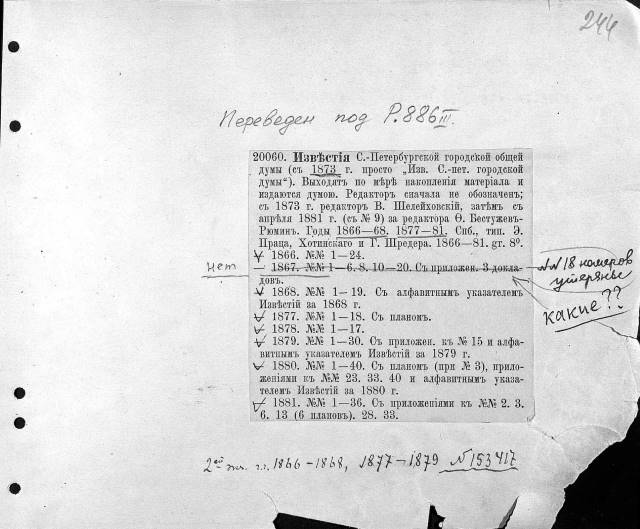 244
Переведен под Р.886 III.
20060. Извѣстія С.-Петербургской городской общей
думы (съ 1873 г. просто „Изв. С.-пет. городской
думы“). Выходятъ по мѣрѣ накопленія матеріала и
издаются думою. Редакторъ сначала не обозначенъ;
съ 1873 г. редакторъ В. Шелейховскій, затѣмъ съ
апрѣля 1881 г. (съ № 9) за редактора Ѳ. Бестужевъ-
Рюминъ. Годы 1866—68. 1877—81. Спб., тип. Э.
Праца, Хотинскаго и Г. Шредера. 1866—81. gr. 8º.
1866. №№ 1—24.
нет — 1867. №№ 1—6. 8. 10—20. Съ приложен. 3 докла-
довъ.
№№ 18 номеров
утеряны
какие??
1868. №№ 1—19. Съ алфавитнымъ указателемъ
Извѣстій за 1868 г.
1877. №№ 1—18. Съ планомъ.
1878. №№ 1—17.
1879. №№ 1—30. Съ приложен. къ № 15 и алфа-
витнымъ указателемъ Извѣстій за 1879 г.
1880. №№ 1—40. Съ планомъ (при № 3), прило-
женіями къ №№ 23. 33. 40 и алфавитнымъ указа-
телемъ Извѣстій за 1880 г.
1881. №№ 1—36. Съ приложеніями къ №№ 2. 3.
6. 13 (6 плановъ). 28. 33.
2ой экз. г.г. 1866-1868, 1877-1879 № 153417